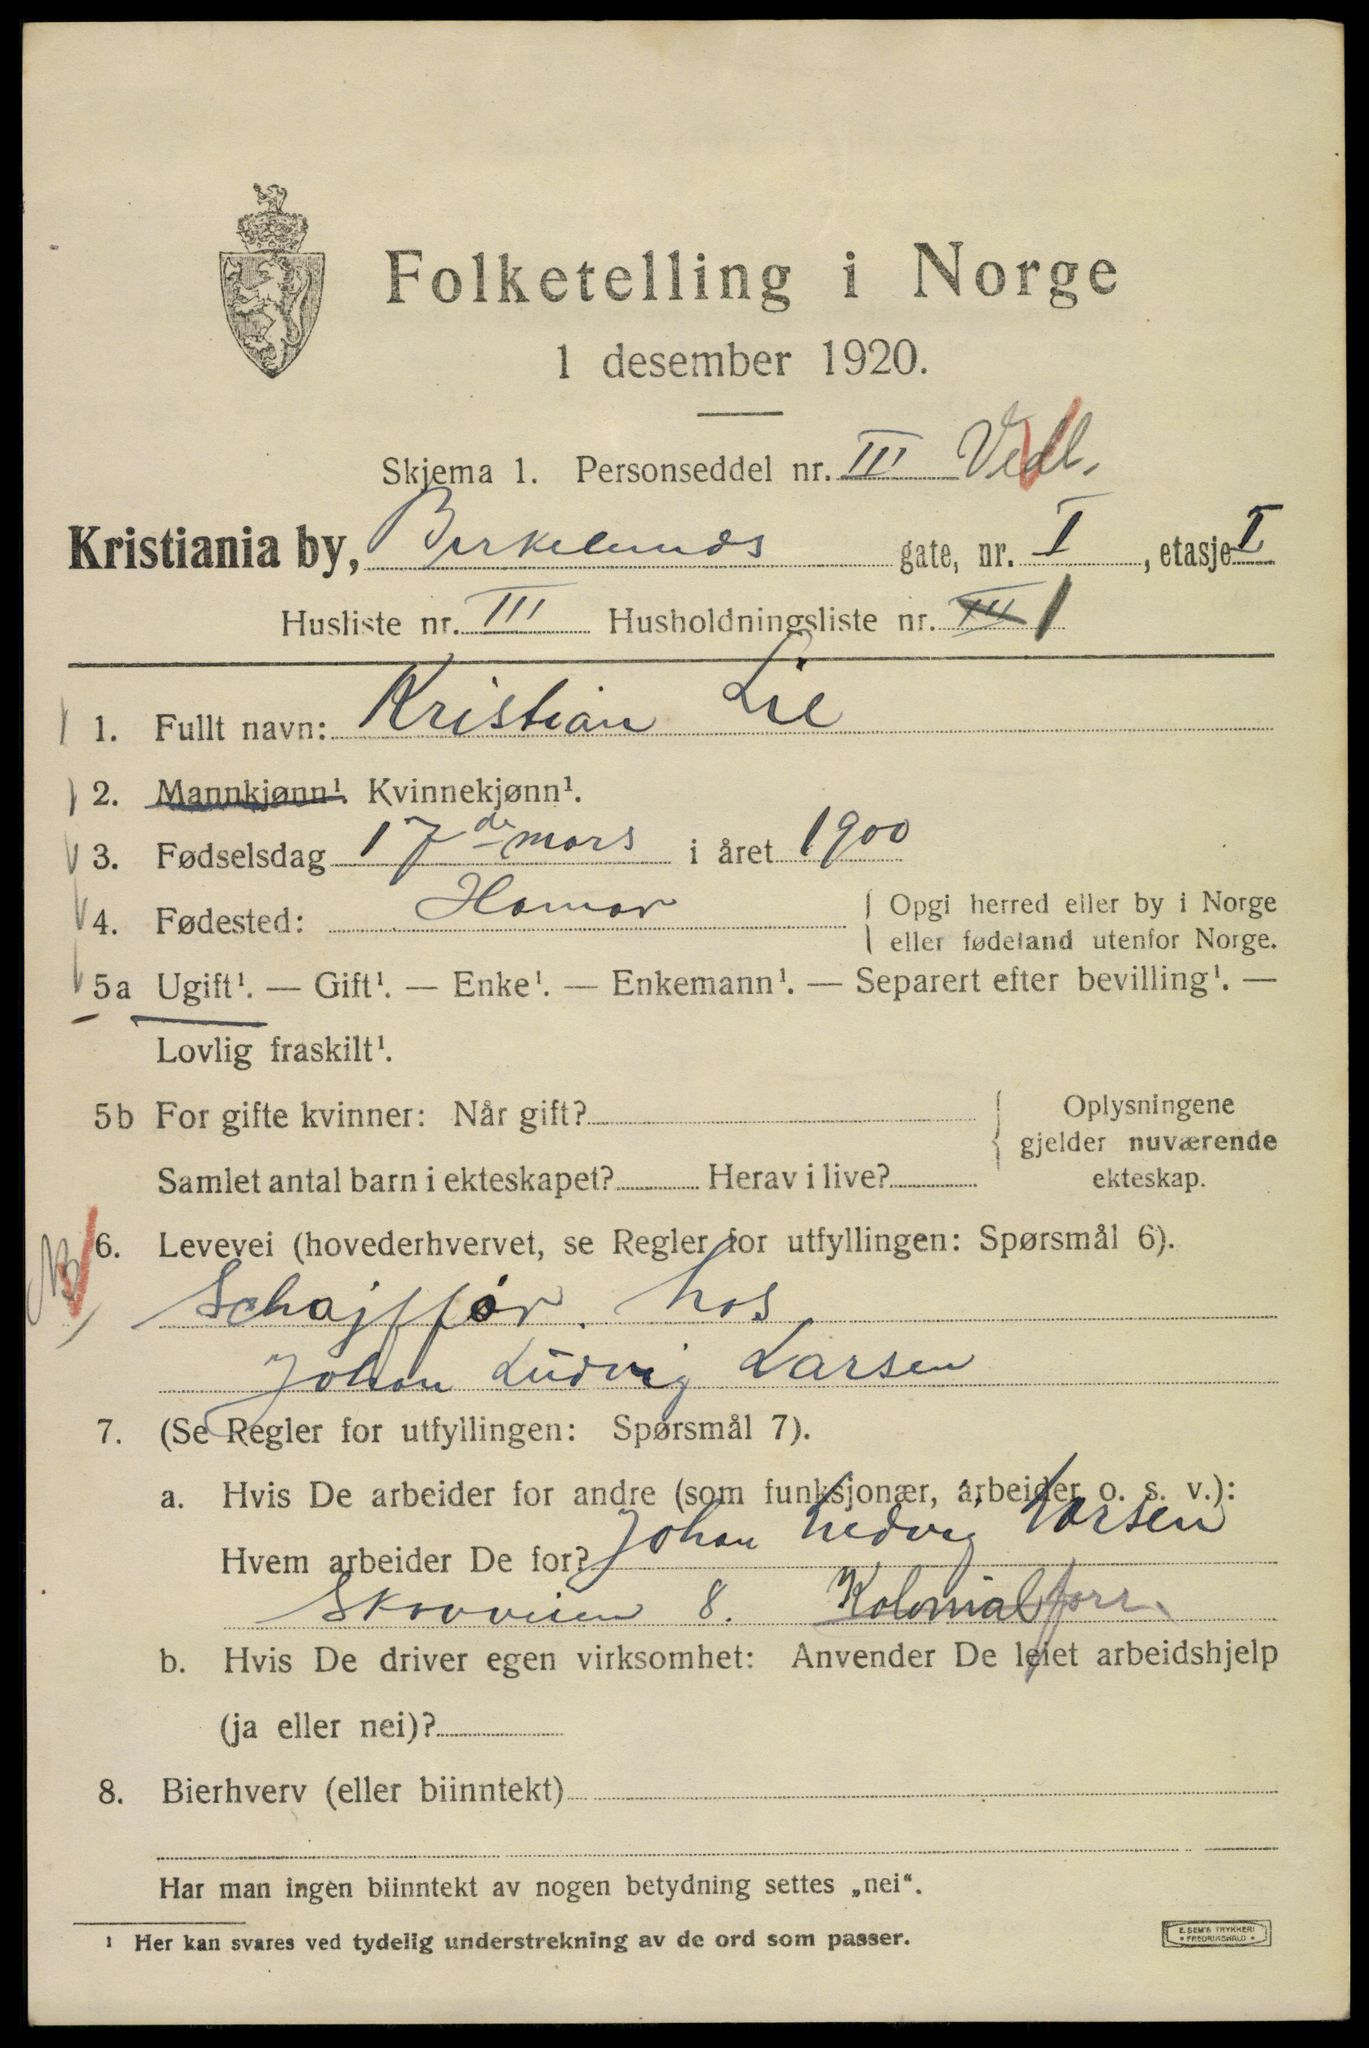 Folketelling i Norge
1 desember 1920.
Skjema 1. Personseddel nr. III Vedl.
Kristiania by, Birkelunds gate, nr. I, etasje I
Husliste nr. III Husholdningsliste nr. III 1
1. Fullt navn: Kristian Lie
2. Mannkjønn¹. Kvinnekjønn¹.
3. Fødselsdag 17de mars i året 1900
4. Fødested: Hamar } Opgi herred eller by i Norge
eller fødeland utenfor Norge.
5a Ugift¹. — Gift¹. — Enke¹. — Enkemann¹. — Separert efter bevilling¹. —
Lovlig fraskilt¹.
5b For gifte kvinner: Når gift? { Oplysningene
gjelder nuværende
Samlet antal barn i ekteskapet? Herav i live? ekteskap.
NB 6. Levevei (hovederhvervet, se Regler for utfyllingen: Spørsmål 6).
Schajffør. hos
Johan Ludvig Larsen
7. (Se Regler for utfyllingen: Spørsmål 7).
a. Hvis De arbeider for andre (som funksjonær, arbeider o. s. v.):
Hvem arbeider De for? Johan Ludvig Larsen
Skovveien 8. Kolonialforr.
b. Hvis De driver egen virksomhet: Anvender De leiet arbeidshjelp
(ja eller nei)?
8. Bierhverv (eller biinntekt)
Har man ingen biinntekt av nogen betydning settes „nei“.
¹ Her kan svares ved tydelig understrekning av de ord som passer.
E. SEM'S TRYKKERI
• FREDRIKSHALD •